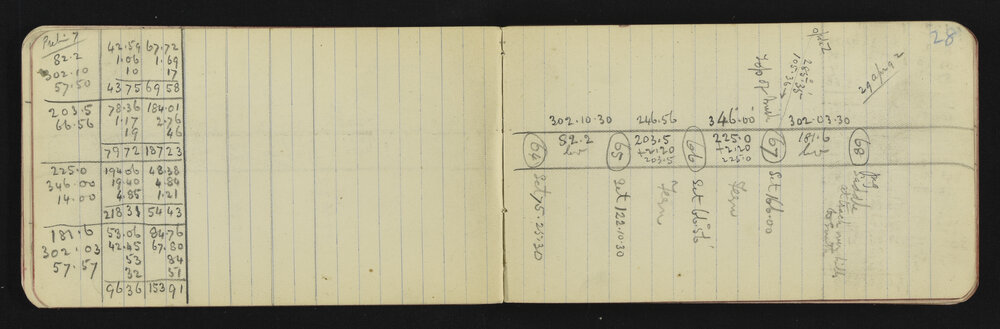 82.2
302.10
57.50
42.59 67.72
1.06 1.69
10 17
43 75 69 58
203.5
66.56
78.36 184.01
1.17 2.76
19 46
79 72 187 23
225.0
346.00
14.00
194.06 48.38
19.40 4.84
4.85 1.21
218 31 54 43
181.6
302.03
57.57
53.06 84.76
42.45 67.80
53 84
32 51
96 36 153 91
28
29 Aug 92
Top of bush
302.10.30 246.56 346.00 302.03.30
64 82.2 65 203.5 66 225.0 67 181.6 68
+2.20 +2.20
203.5 225.0
Set 75.25.30
Set 122.10.30
Fern
Set 66.56
Fern
Set 166.00
Peg
Saddle